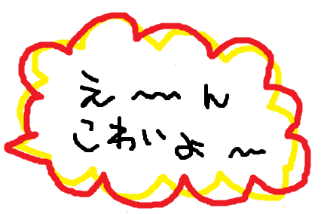 え〜ん
こわいよ〜